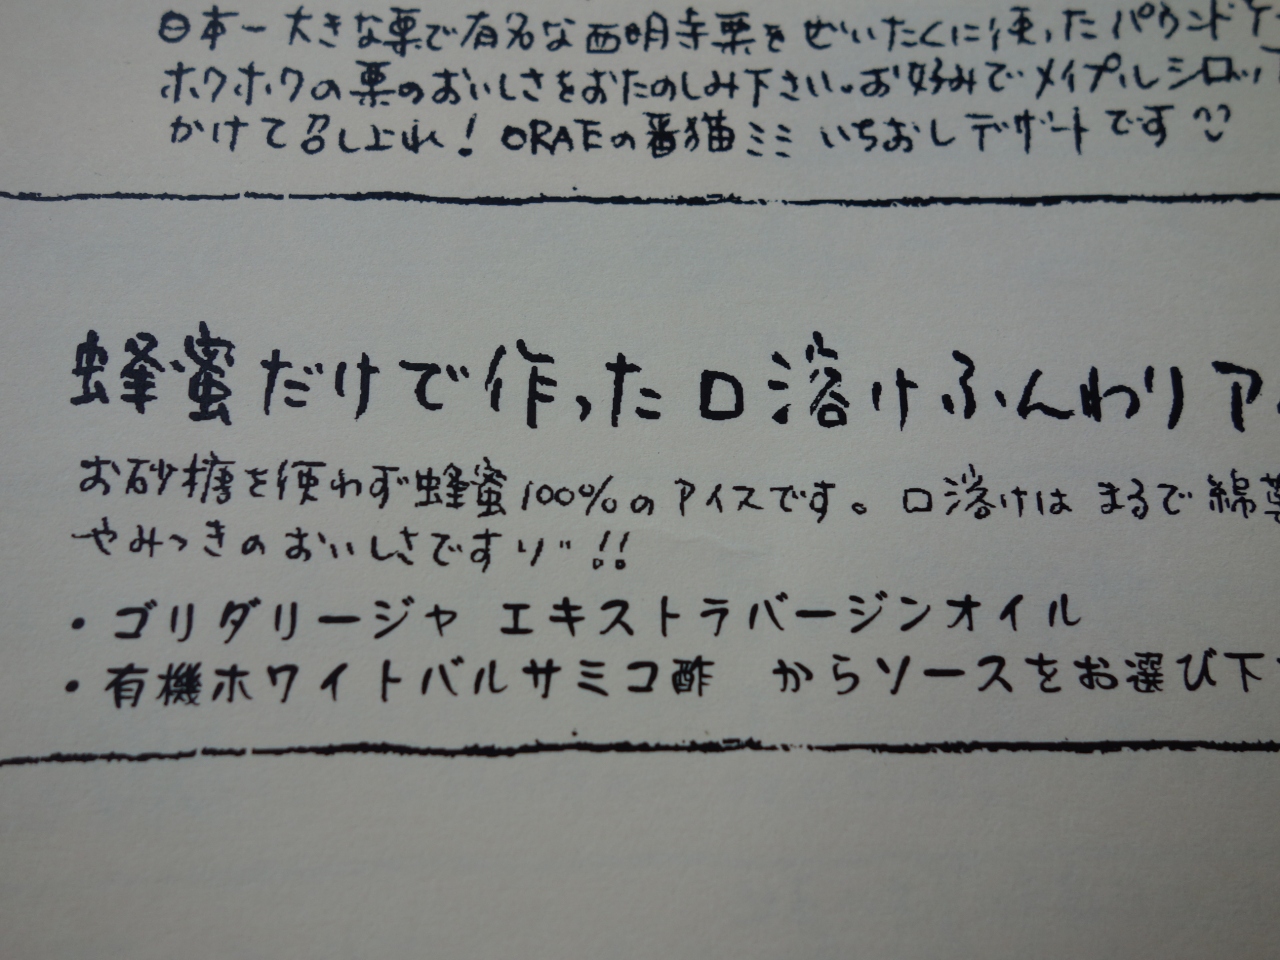 日本一大きな栗で有名な西明寺栗をぜいたくに使ったパウンドケ
ホクホクの栗のおいしさをおたのしみ下さい。お好みでメイプルシロッ
かけて召し上れ! ORAEの番猫ミミ いちおしデザートです
蜂蜜だけで作った口溶けふんわりア
お砂糖を使わず蜂蜜100%のアイスです。口溶けは まるで綿
やみつきのおいしさですリ" !!
・ゴリダリージャ エキストラバージンオイル
・有機ホワイトバルサミコ酢 からソースをお選び下